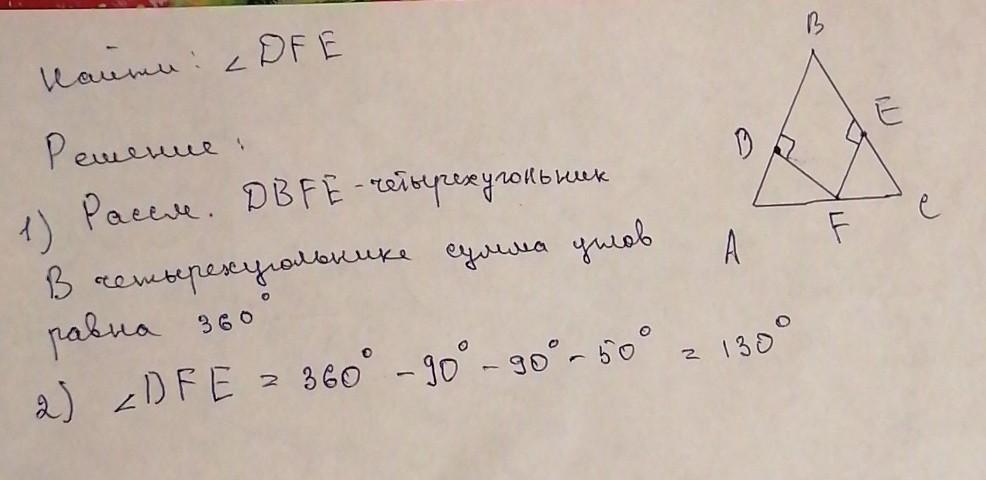 Найти: ∠DFE
Решение:
1) Рассм. DBFE - четырехугольник
В четырехугольнике сумма углов
равна 360°
2) ∠DFE = 360° - 90° - 90° - 50° = 130°
B
D
E
A
F
C